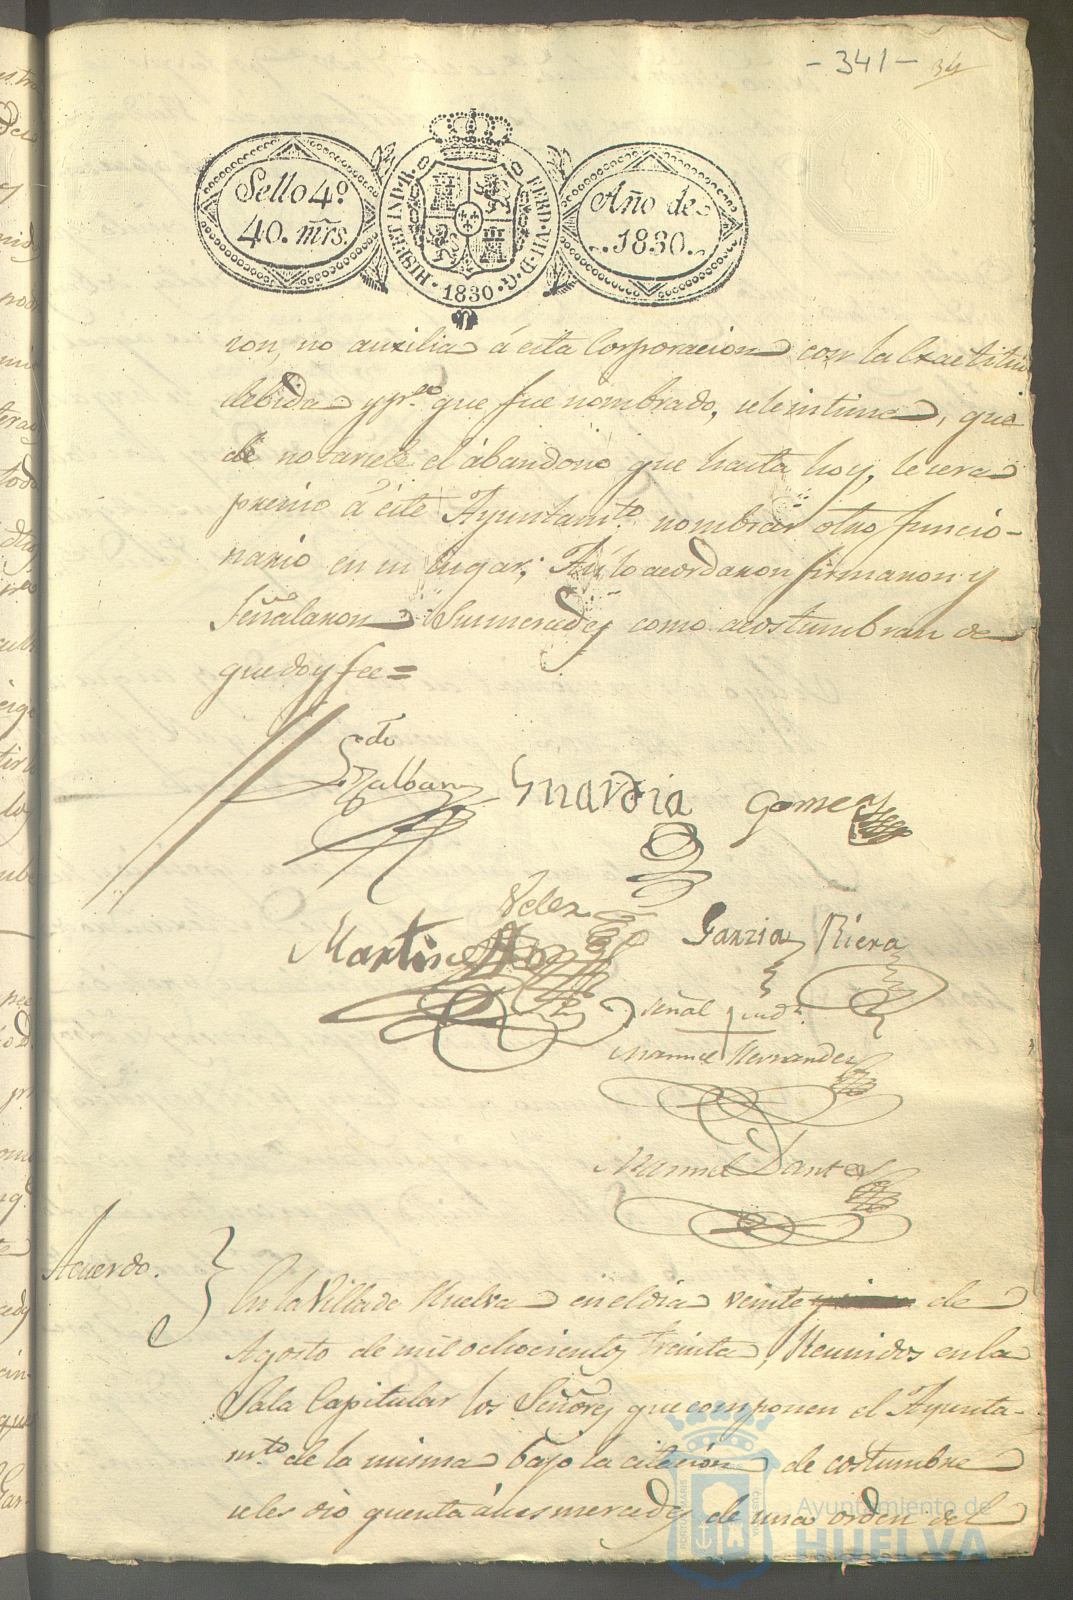 - 341 -
34
Sello 4.º
40. mrs.
HISP. ET IND. R.
FERD. VII. D. G.
1830
Año de
1830.
con, no auxilia á esta Corporacion con la Exactitud
debida y pª. lo que fue nombrado, se le intime, que
de notarsele el ábandono que hasta hoy, le sera
preciso á éste Ayuntamto. nombrar otro funcio-
nario en su lugar; Asi lo acordaron firmaron y
Señalaron Sus mercedes como acostumbran de
que doy fee=
Ldo
Guardia
Gomez
Velez
Martinez
Garzia
Riera
Señal
Manuel Hernandez
Manuel Dante
Acuerdo.
En la Villa de Huelva en el dia veinte de
Agosto de mil ochocientos treinta, Reunidos en la
Sala Capitular los Señores que componen el Ayunta-
mto. de la misma bajo la citacion de costumbre
se les dio quenta á sus mercedes de una orden del
Ayuntamiento de
HUELVA